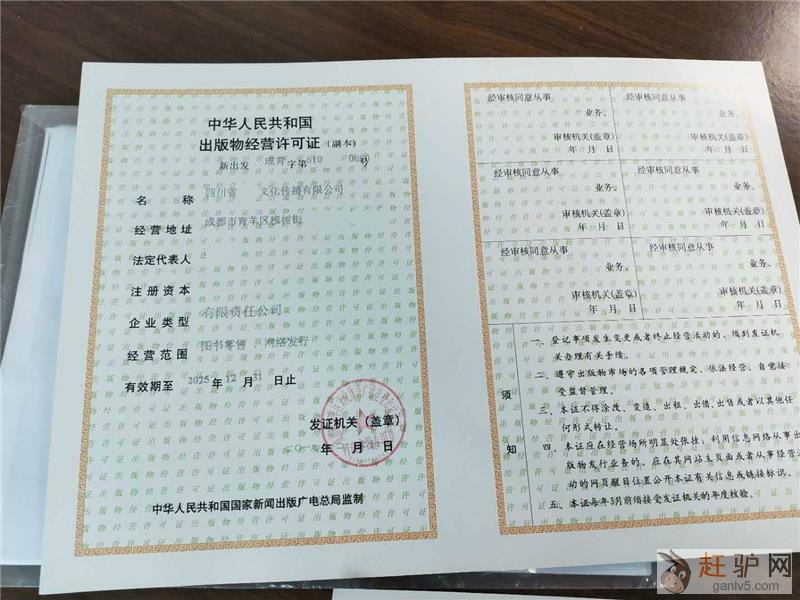 中华人民共和国
出版物经营许可证(副本)
新出发 成青 字第 号
名称 四川省 文化传播有限公司
经营地址 成都市青羊区槐树街
法定代表人
注册资本
企业类型 有限责任公司
经营范围 图书零售 网络发行
有效期至 2025年12月31日止
发证机关（盖章）
年 月 日
中华人民共和国国家新闻出版广电总局监制
经审核同意从事
业务。
审核机关(盖章)
年 月 日
经审核同意从事
业务。
审核机关(盖章)
年 月 日
经审核同意从事
业务。
审核机关(盖章)
年 月 日
经审核同意从事
业务。
审核机关(盖章)
年 月 日
经审核同意从事
业务。
审核机关(盖章)
年 月 日
经审核同意从事
业务。
审核机关(盖章)
年 月 日
须知
一、登记事项发生变更或者终止经营活动的，须到发证机
关办理有关手续。
二、遵守出版物市场的各项管理规定，依法经营、自觉接
受监督管理。
三、本证不得涂改、变造、出租、出借、出售或者以其他任
何形式转让。
四、本证应在经营场所明显处张挂，利用信息网络从事出
版物发行业务的，应在其网站主页面或者从事经营活
动的网页醒目位置公开本证有关信息或链接标识。
五、本证每年3月前须接受发证机关的年度核验。
赶驴网
ganlv5.com